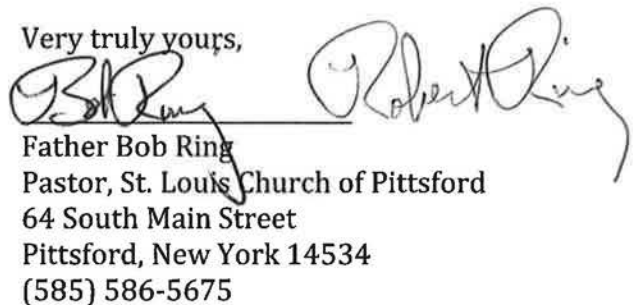 Very truly yours,
Bob Ring Robert Ring
Father Bob Ring
Pastor, St. Louis Church of Pittsford
64 South Main Street
Pittsford, New York 14534
(585) 586-5675